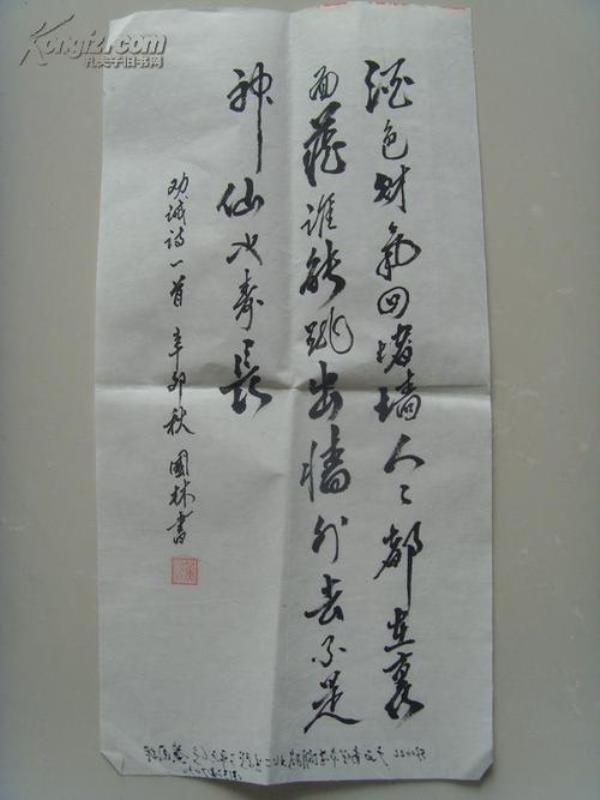 酒色财氣四堵墙人人都在裏
面藏谁能跳出墙外去不是
神仙也寿長
劝诫诗一首 辛卯秋 國林書
Kongfz.com
孔夫子旧书网